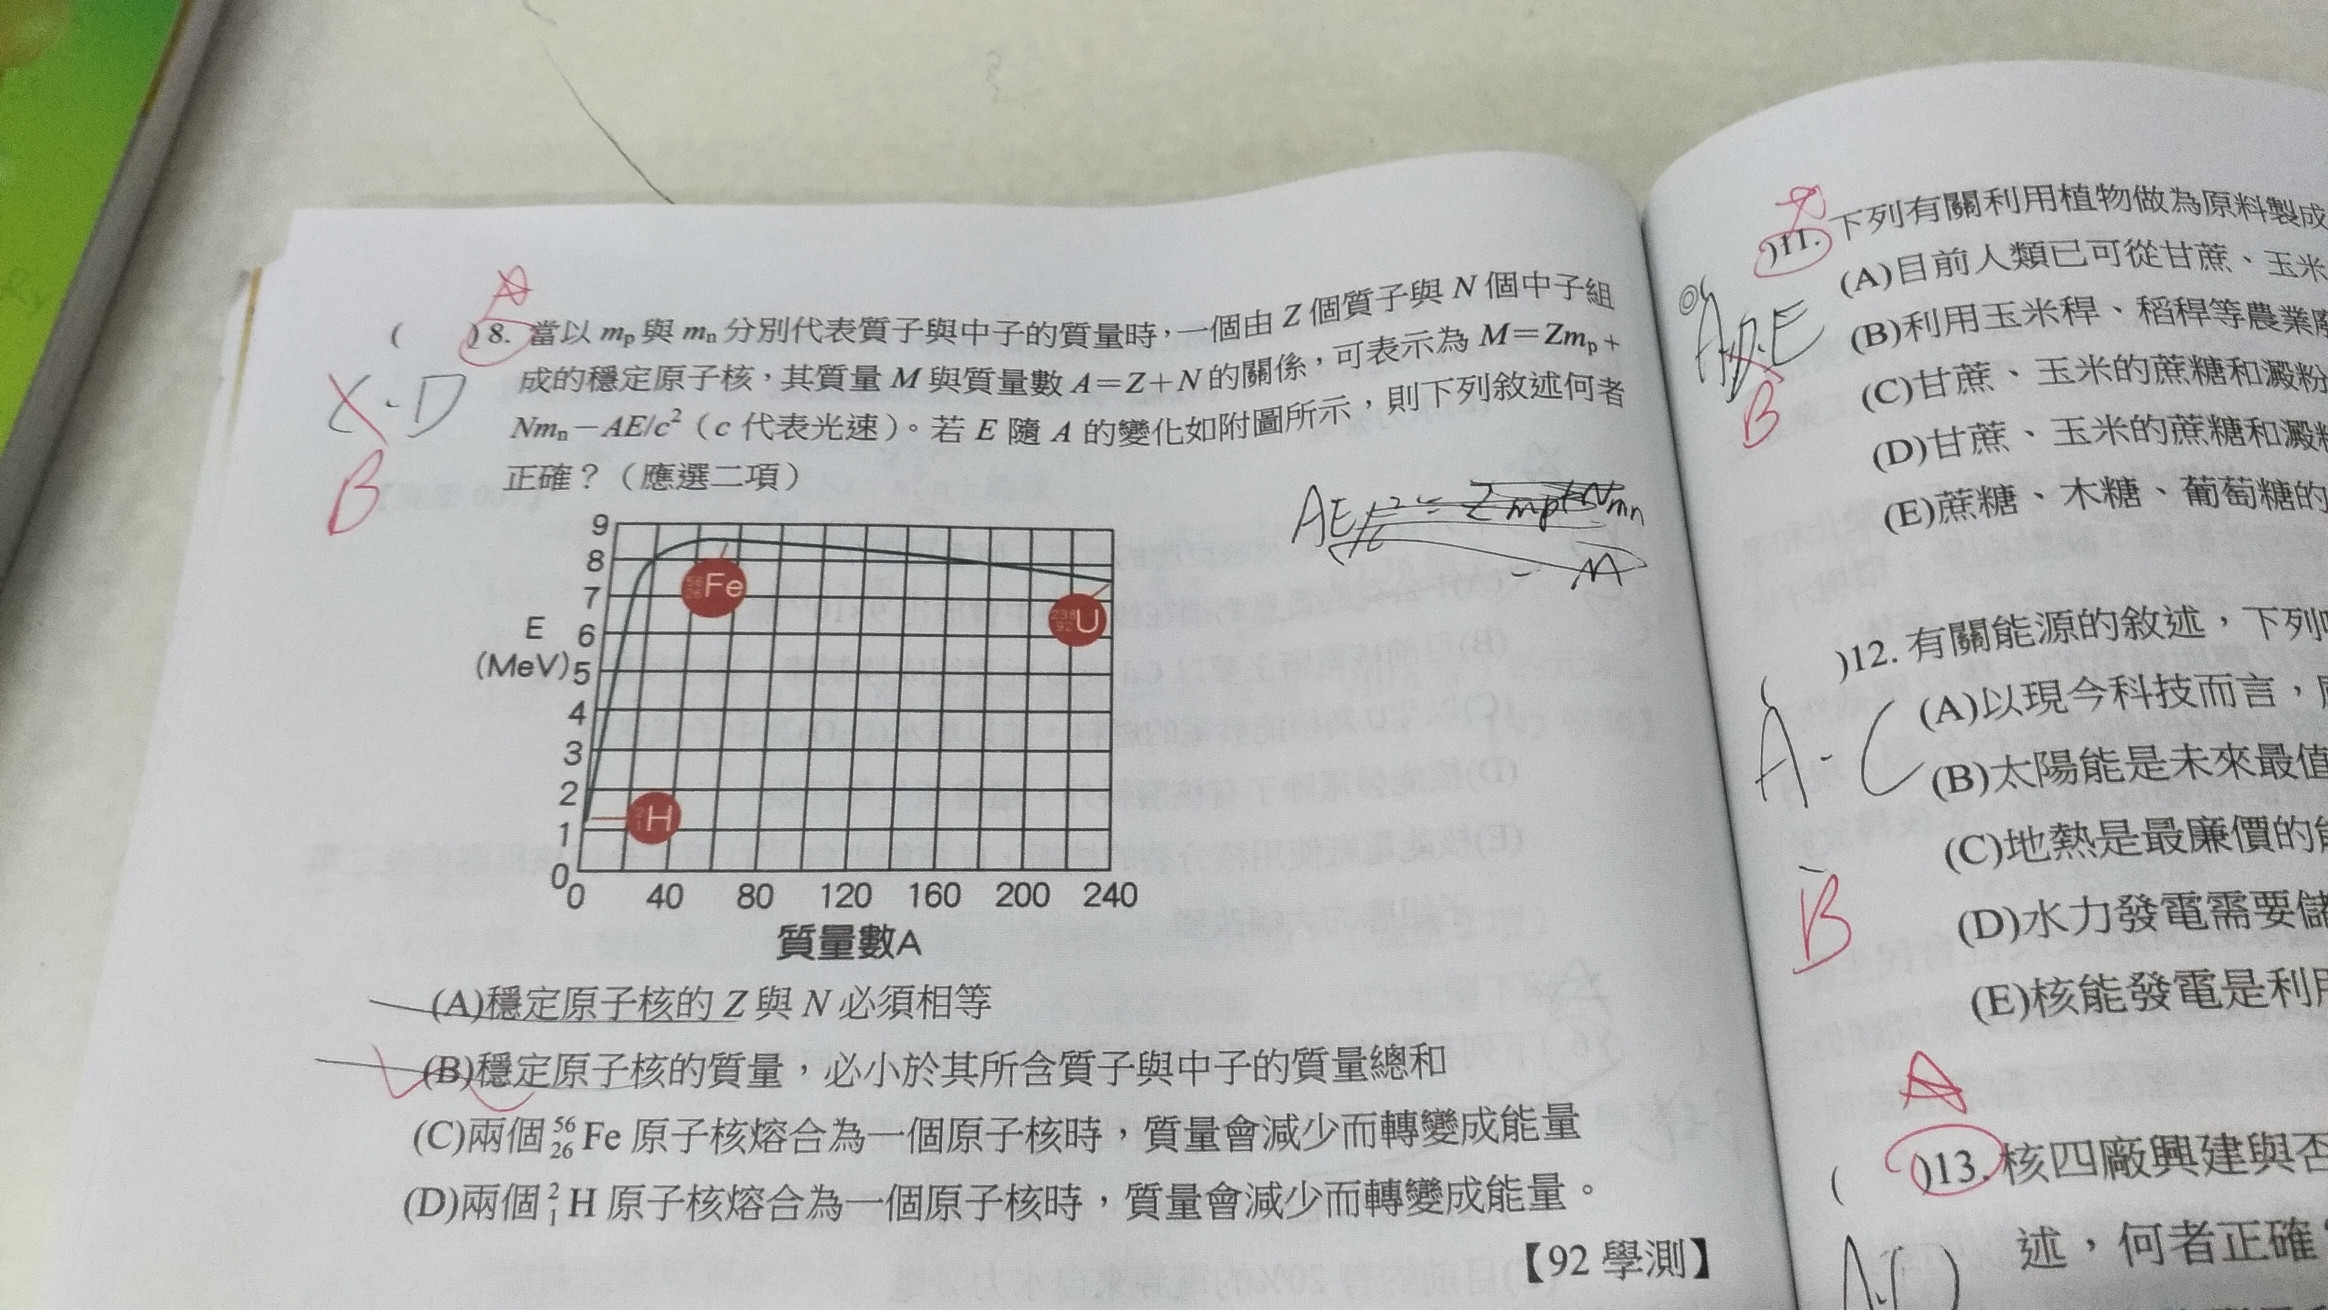 ( )8. 當以 mp 與 mn 分別代表質子與中子的質量時，一個由 Z 個質子與 N 個中子組
成的穩定原子核，其質量 M 與質量數 A=Z+N 的關係，可表示為 M=Zmp+
Nmn−AE/c²（c 代表光速）。若 E 隨 A 的變化如附圖所示，則下列敘述何者
正確？（應選二項）
X.D
B
AE/c² = Zmp+Nmn
− M
9
8
7
6
5
4
3
2
1
0
E
(MeV)
56 26 Fe
238 92 U
2 1 H
0 40 80 120 160 200 240
質量數A
(A)穩定原子核的 Z 與 N 必須相等
(B)穩定原子核的質量，必小於其所含質子與中子的質量總和
(C)兩個 56 26 Fe 原子核熔合為一個原子核時，質量會減少而轉變成能量
(D)兩個 2 1 H 原子核熔合為一個原子核時，質量會減少而轉變成能量。
【92 學測】
)11. 下列有關利用植物做為原料製成
(A)目前人類已可從甘蔗、玉米
(B)利用玉米稈、稻稈等農業廢
(C)甘蔗、玉米的蔗糖和澱粉
(D)甘蔗、玉米的蔗糖和澱粉
(E)蔗糖、木糖、葡萄糖的
A.D.E
B
)12. 有關能源的敘述，下列
(A)以現今科技而言，
(B)太陽能是未來最值
(C)地熱是最廉價的能
(D)水力發電需要儲
(E)核能發電是利用
A.C
B
( )13. 核四廠興建與否
述，何者正確